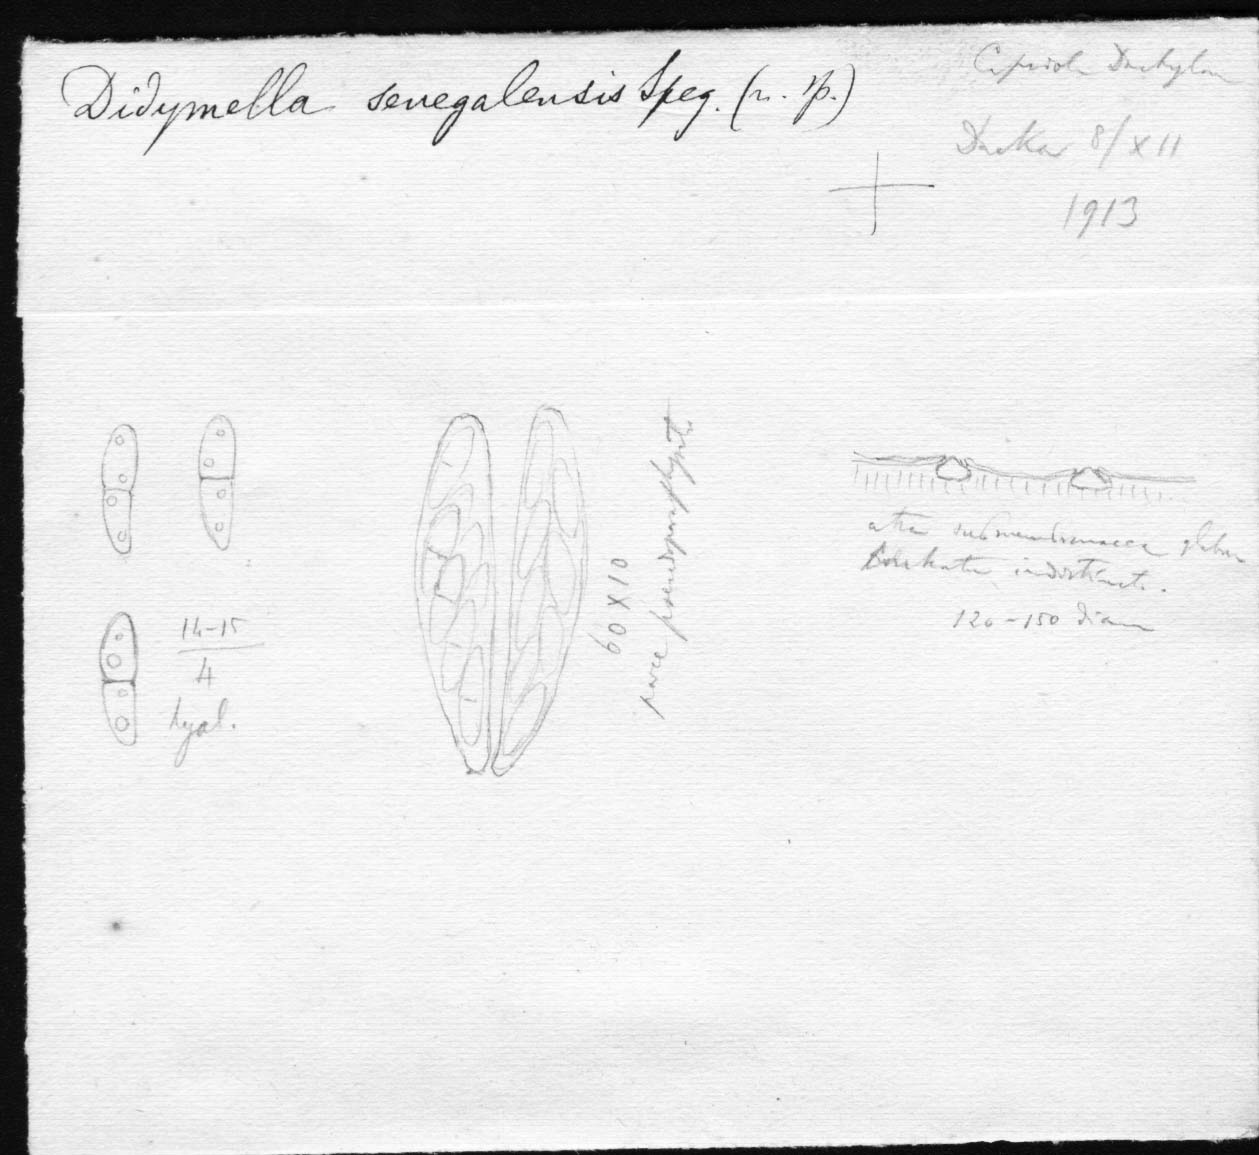 Didymella senegalensis Speg. (n. sp.)
Capriola Dactylon
Dakar 8/XII
1913
14-15
4
hyal.
60 X 10
parce pseudoparaphysati
atra submembranacea glabra
indistincta.
120-150 diam